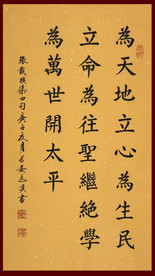 為天地立心為生民
立命為往聖繼絕學
為萬世開太平
張載橫渠四句庚子